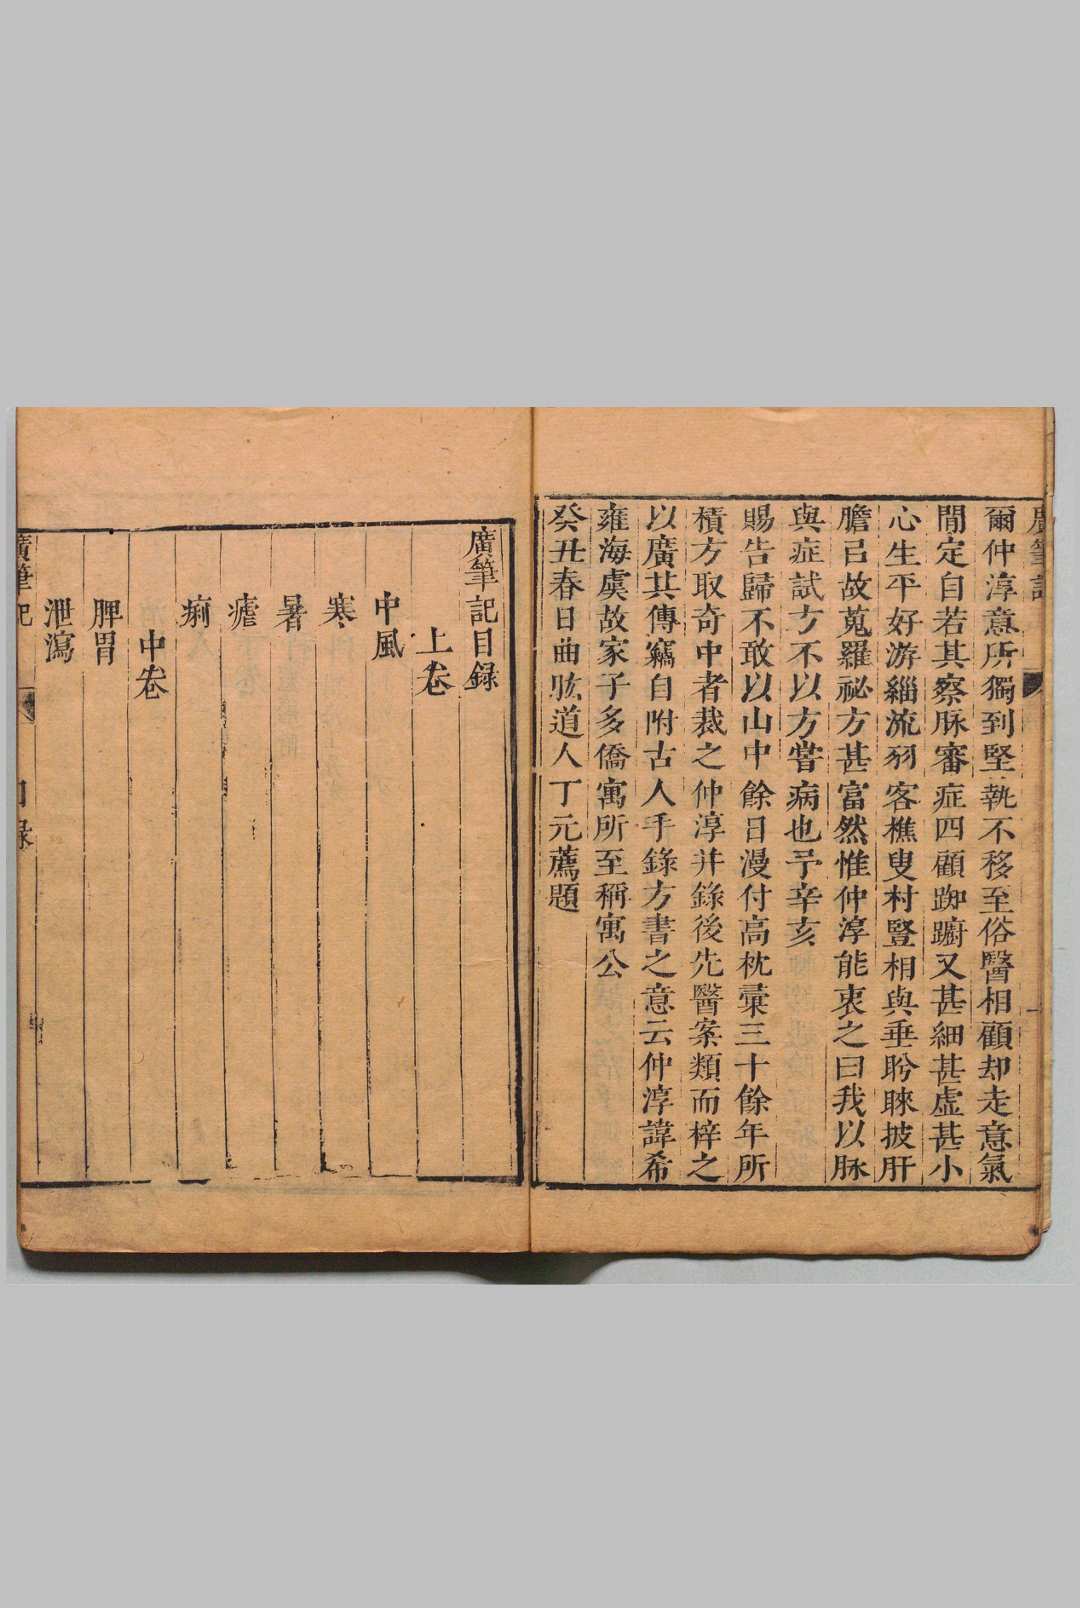 廣筆記
爾仲淳意所獨到堅執不移至俗醫相顧却走意氣
閒定自若其察脉審症四顧踟躕又甚細甚虛甚小
心生平好游緇流羽客樵叟村豎相與垂盻睞披肝
膽已故蒐羅祕方甚富然惟仲淳能衷之曰我以脉
與症試方不以方嘗病也予辛亥
賜告歸不敢以山中餘日漫付高枕彚三十餘年所
積方取奇中者裁之仲淳并錄後先醫案類而梓之
以廣其傳竊自附古人手錄方書之意云仲淳諱希
雍海虞故家子多僑寓所至稱寓公
癸丑春日曲肱道人丁元薦題
廣筆記目録
上卷
中風
寒
暑
瘧
痢
中卷
脾胃
泄瀉
廣筆記 目録